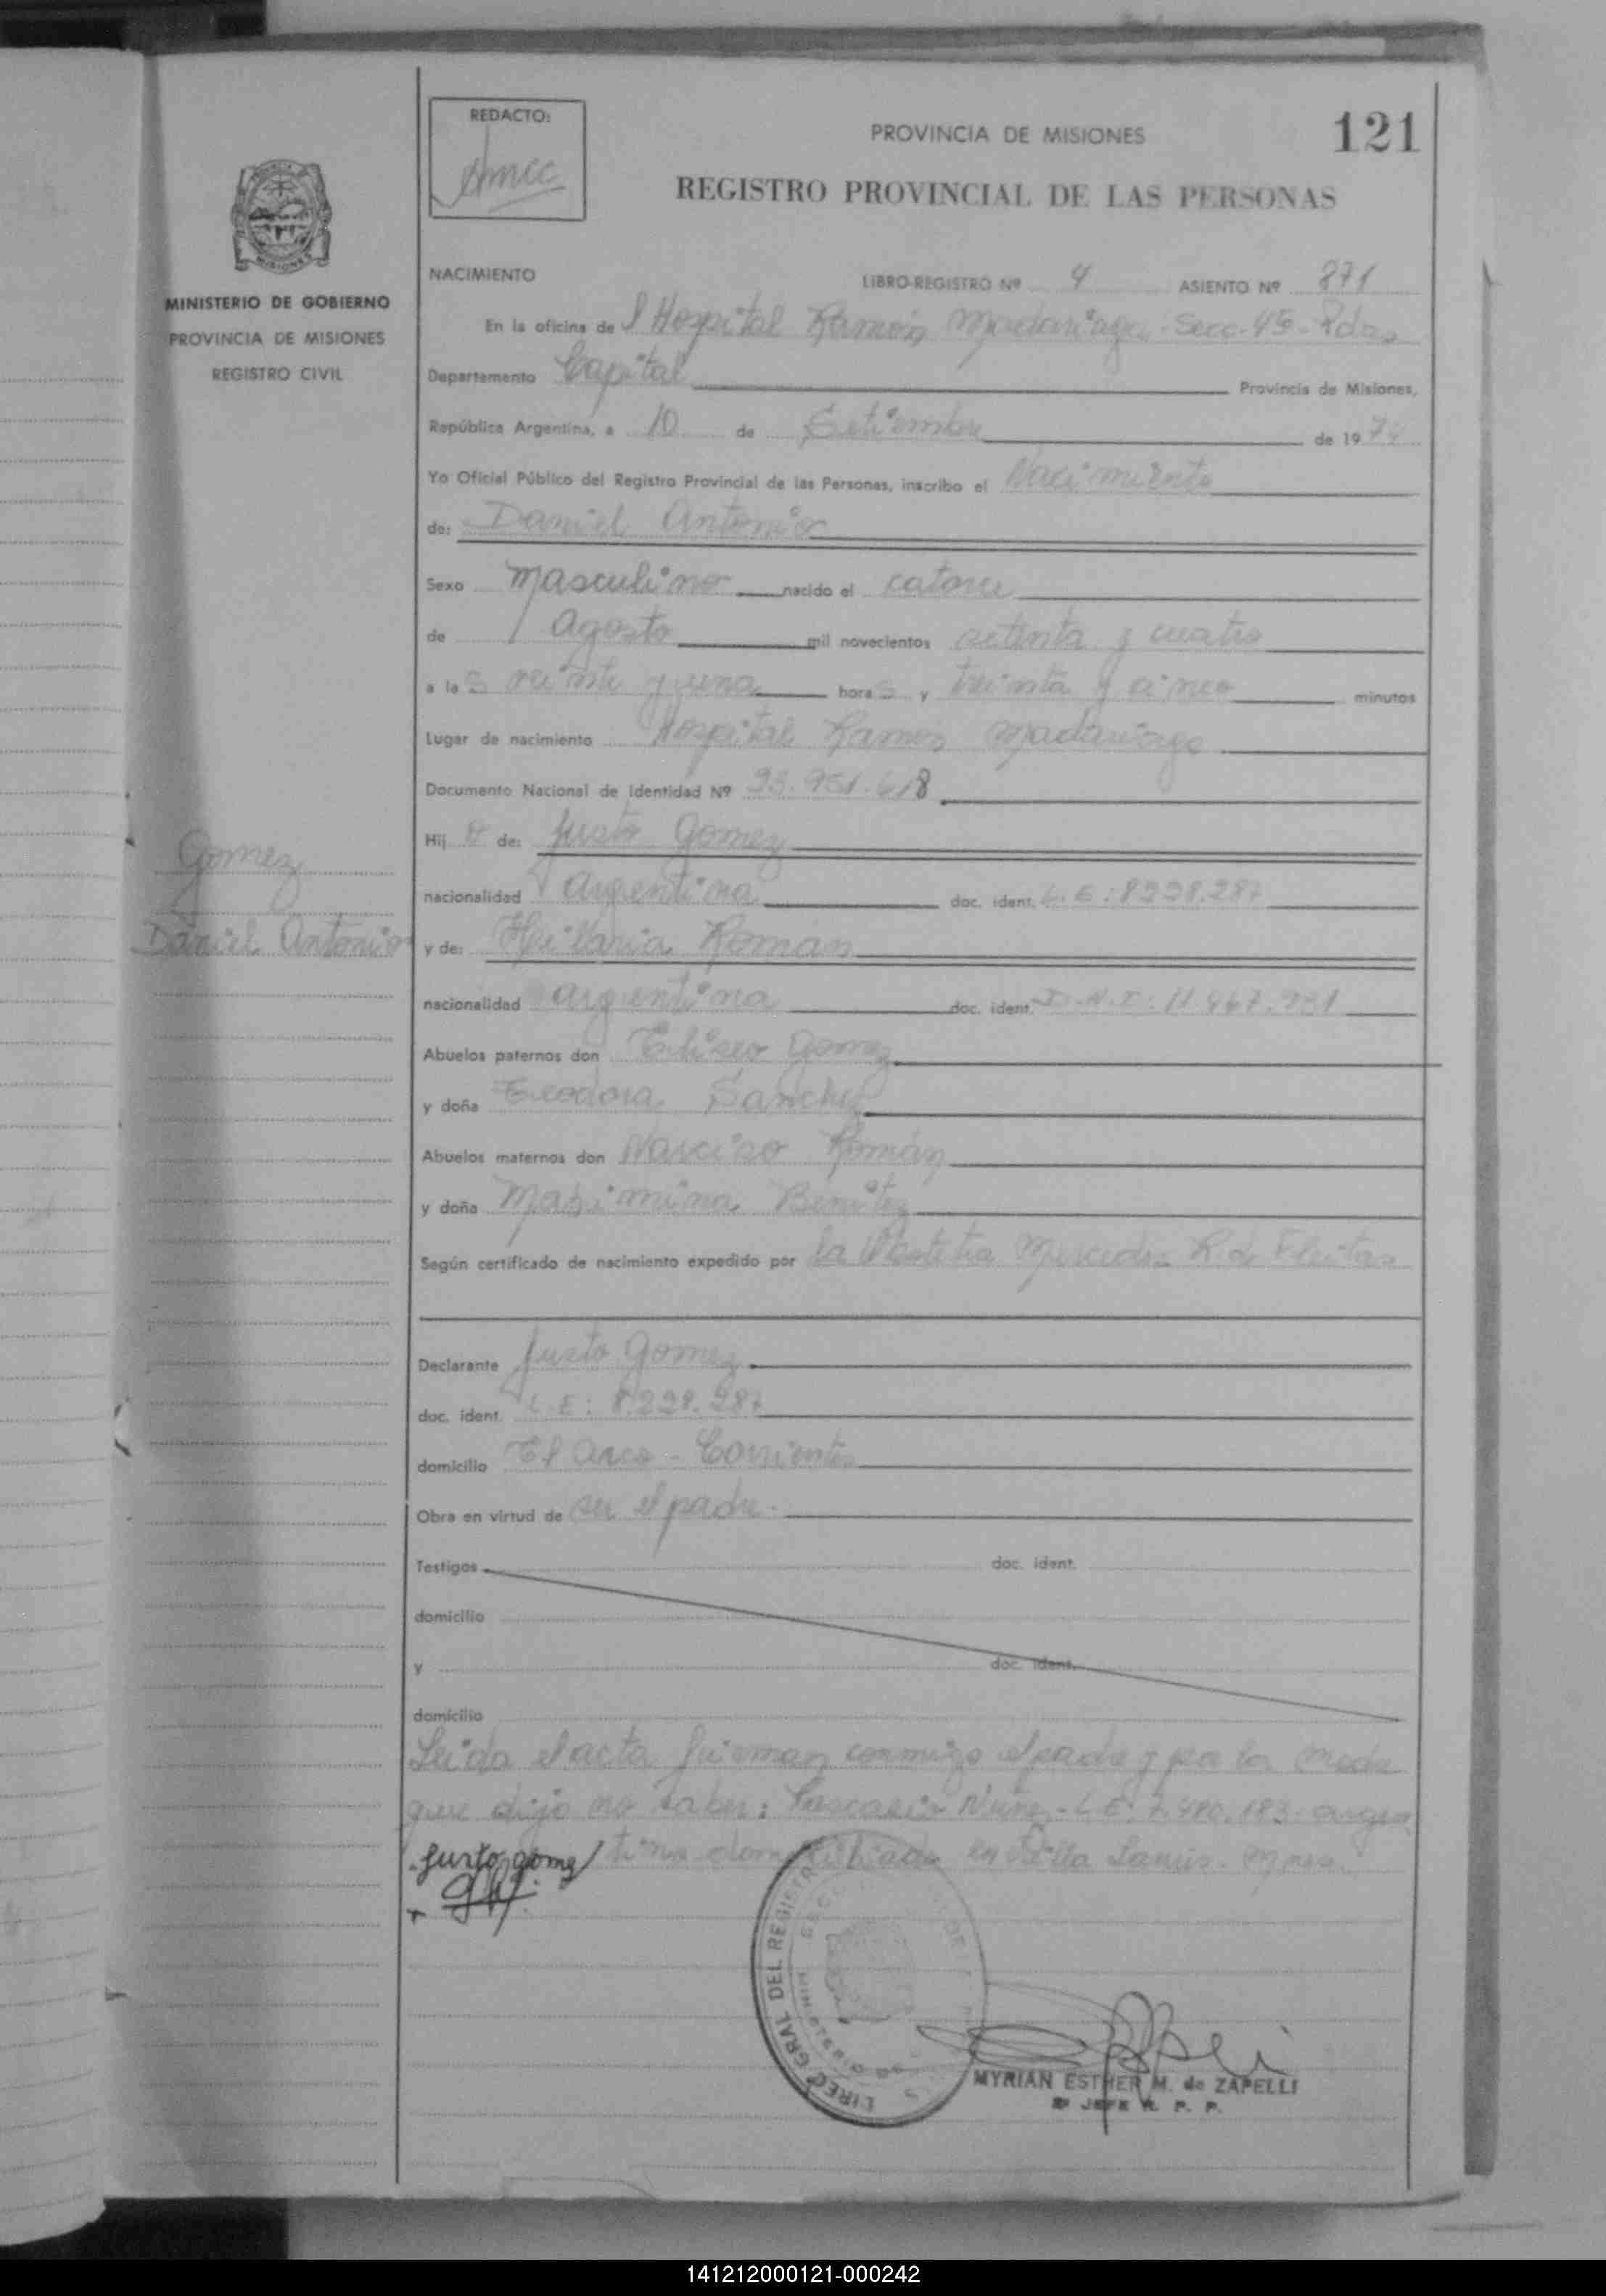 REDACTO:
PROVINCIA DE MISIONES
121
REGISTRO PROVINCIAL DE LAS PERSONAS
MINISTERIO DE GOBIERNO
PROVINCIA DE MISIONES
REGISTRO CIVIL
NACIMIENTO LIBRO-REGISTRO Nº 4 ASIENTO Nº 871
En la oficina de l Hospital Ramón Madariaga - Secc. 45 - Pdas
Departamento Capital Provincia de Misiones,
República Argentina, a 10 de Setiembre de 1974
Yo Oficial Público del Registro Provincial de las Personas, inscribo el Nacimiento
de: Daniel Antonio
Sexo masculino nacido el catorce
de Agosto mil novecientos setenta y cuatro
a las veinte y una horas y treinta y cinco minutos
Lugar de nacimiento Hospital Ramón Madariaga
Documento Nacional de Identidad Nº 23.951.618
Hijo de: Justo Gomez
nacionalidad argentina doc. ident. L.E: 8.228.287
Gomez
Daniel Antonio
y de: Román
nacionalidad argentina doc. ident. D.N.I: 11.467.931
Abuelos paternos don Eliseo Gomez
y doña Teodora Sanchez
Abuelos maternos don Narciso Román
y doña Maximina Benitez
Según certificado de nacimiento expedido por la Partera Mercedes R de Fleitas
Declarante Justo Gomez
doc. ident. L.E: 8.228.287
domicilio El Arco - Corrientes
Obra en virtud de ser el padre.
Testigos doc. ident.
domicilio
y doc. ident.
domicilio
Leida el acta firman conmigo el padre y por la madre
que dijo no saber: Nuñez - L.E: 7.480.183 - argen
tino domiciliado en Villa Lanús
Justo gomez
DIREC. GRAL DEL REGISTR
MINISTERIO DE
MYRIAN ESTHER M. de ZAPELLI
JEFE R. P. P.
141212000121-000242